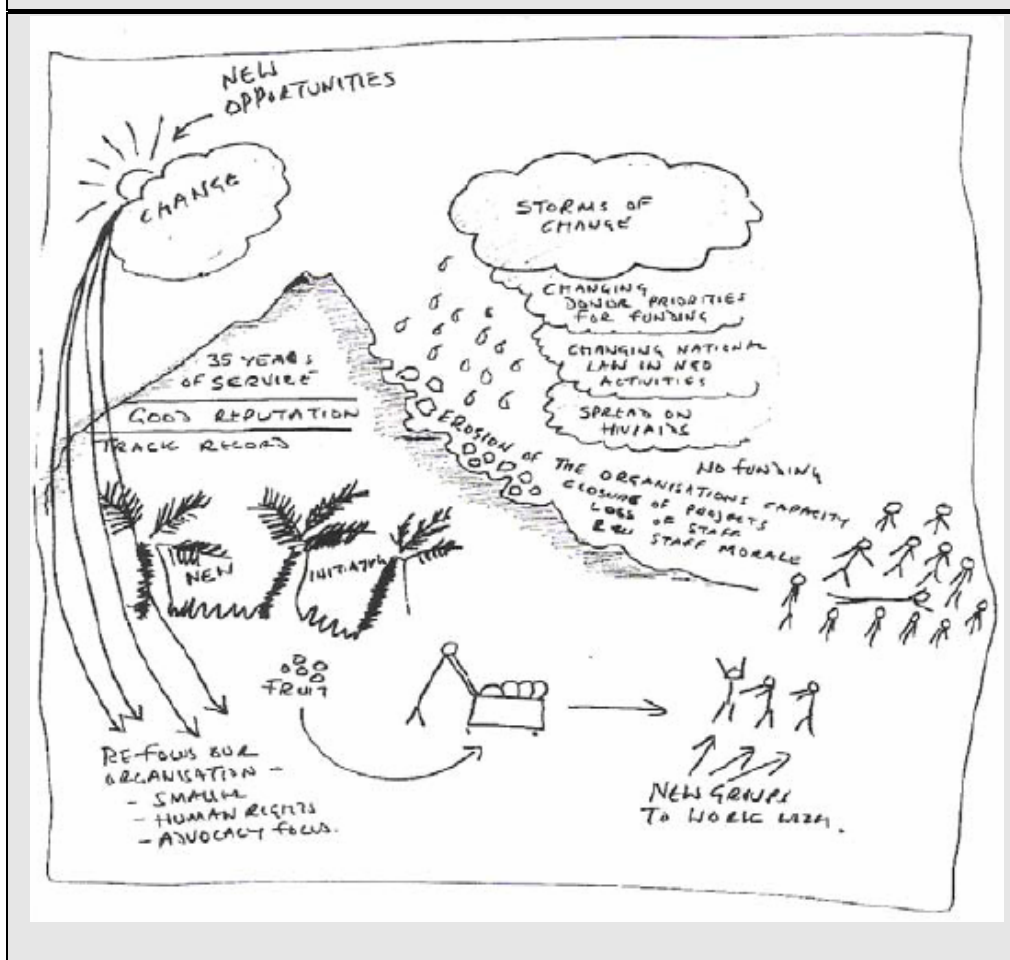 NEW
OPPORTUNITIES
CHANGE
STORMS OF
CHANGE
CHANGING
DONOR PRIORITIES
FOR FUNDING
CHANGING NATIONAL
LAW IN NGO
ACTIVITIES
SPREAD ON
HIV/AIDS
35 YEARS
OF SERVICE
GOOD REPUTATION
TRACK RECORD
EROSION OF THE ORGANISATIONS CAPACITY
NO FUNDING
CLOSURE OF PROJECTS
LOSS OF STAFF
STAFF MORALE
NEW
FRUIT
RE-FOCUS OUR
ORGANISATION -
- SMALLER
- HUMAN RIGHTS
- ADVOCACY FOCUS.
NEW GROUPS
TO WORK WITH.